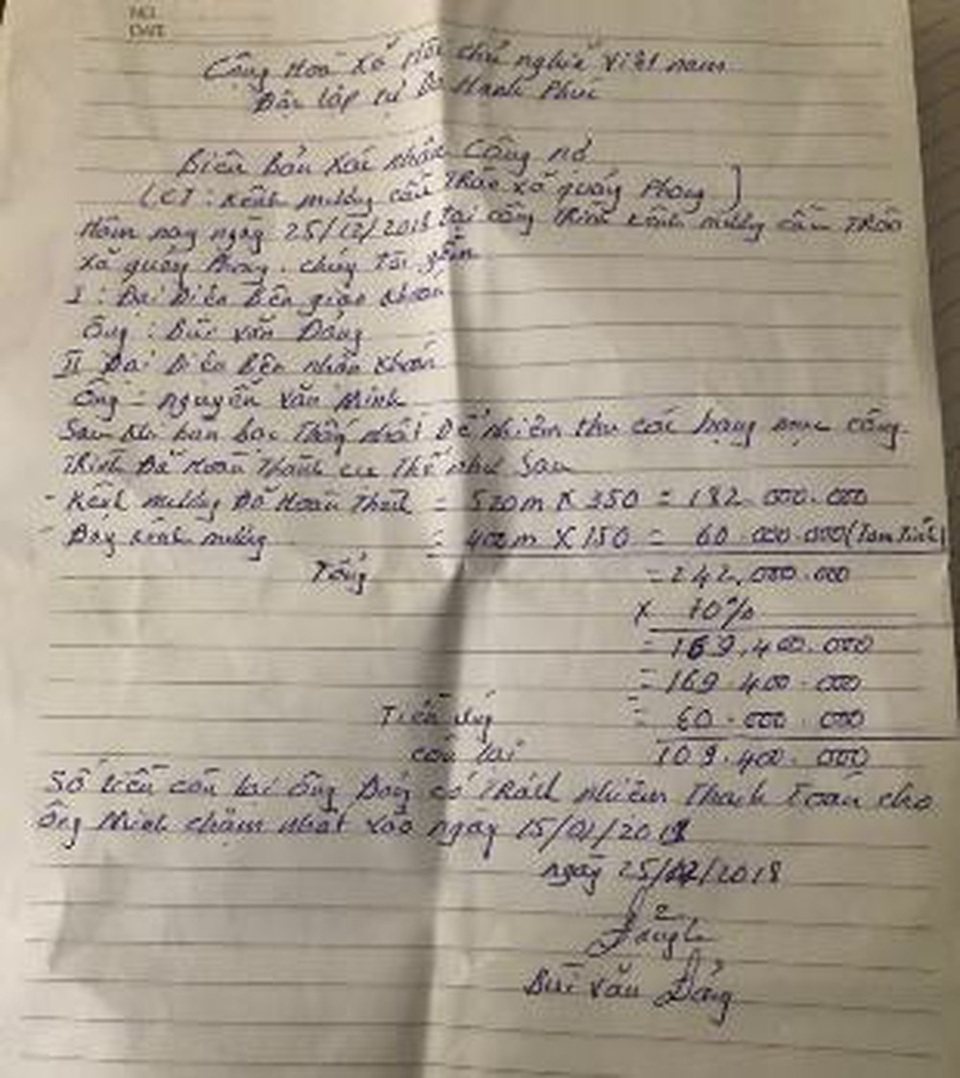 NO.
DATE
Cộng Hoà Xã Hội chủ nghĩa Việt nam
Độc lập tự Do Hạnh Phúc
Biên Bản Xác nhận Công nợ
(CT: Kênh mương cầu TRáo xã quảng Phong)
Hôm nay ngày 25/12/2018 tại công Trình kênh mương cầu TRáo
Xã quảng Phong. chúng Tôi gồm
I: Đại Diện Bên giao khoán
Ông: Bùi văn Đảng
II Đại Diện Bên nhận khoán
Ông: nguyễn Văn Minh
Sau khi bàn bạc Thống nhất Để nhiệm thu các hạng mục công
Trình Đã Hoàn Thành cụ Thể như Sau
- Kênh mương Đã Hoàn Thành = 520m X 350 = 182.000.000
- Đáy kênh mương = 400m X 150 = 60.000.000 (Tạm Tính)
Tổng = 242.000.000
X 70%
= 169.400.000
= 169.400.000
Tiền ứng = 60.000.000
còn lại 109.400.000
Số tiền còn lại ông Đảng có TRách nhiệm Thanh Toán cho
ông Minh chậm nhất vào ngày 15/01/2019
ngày 25/12/2018
Bùi Văn Đảng